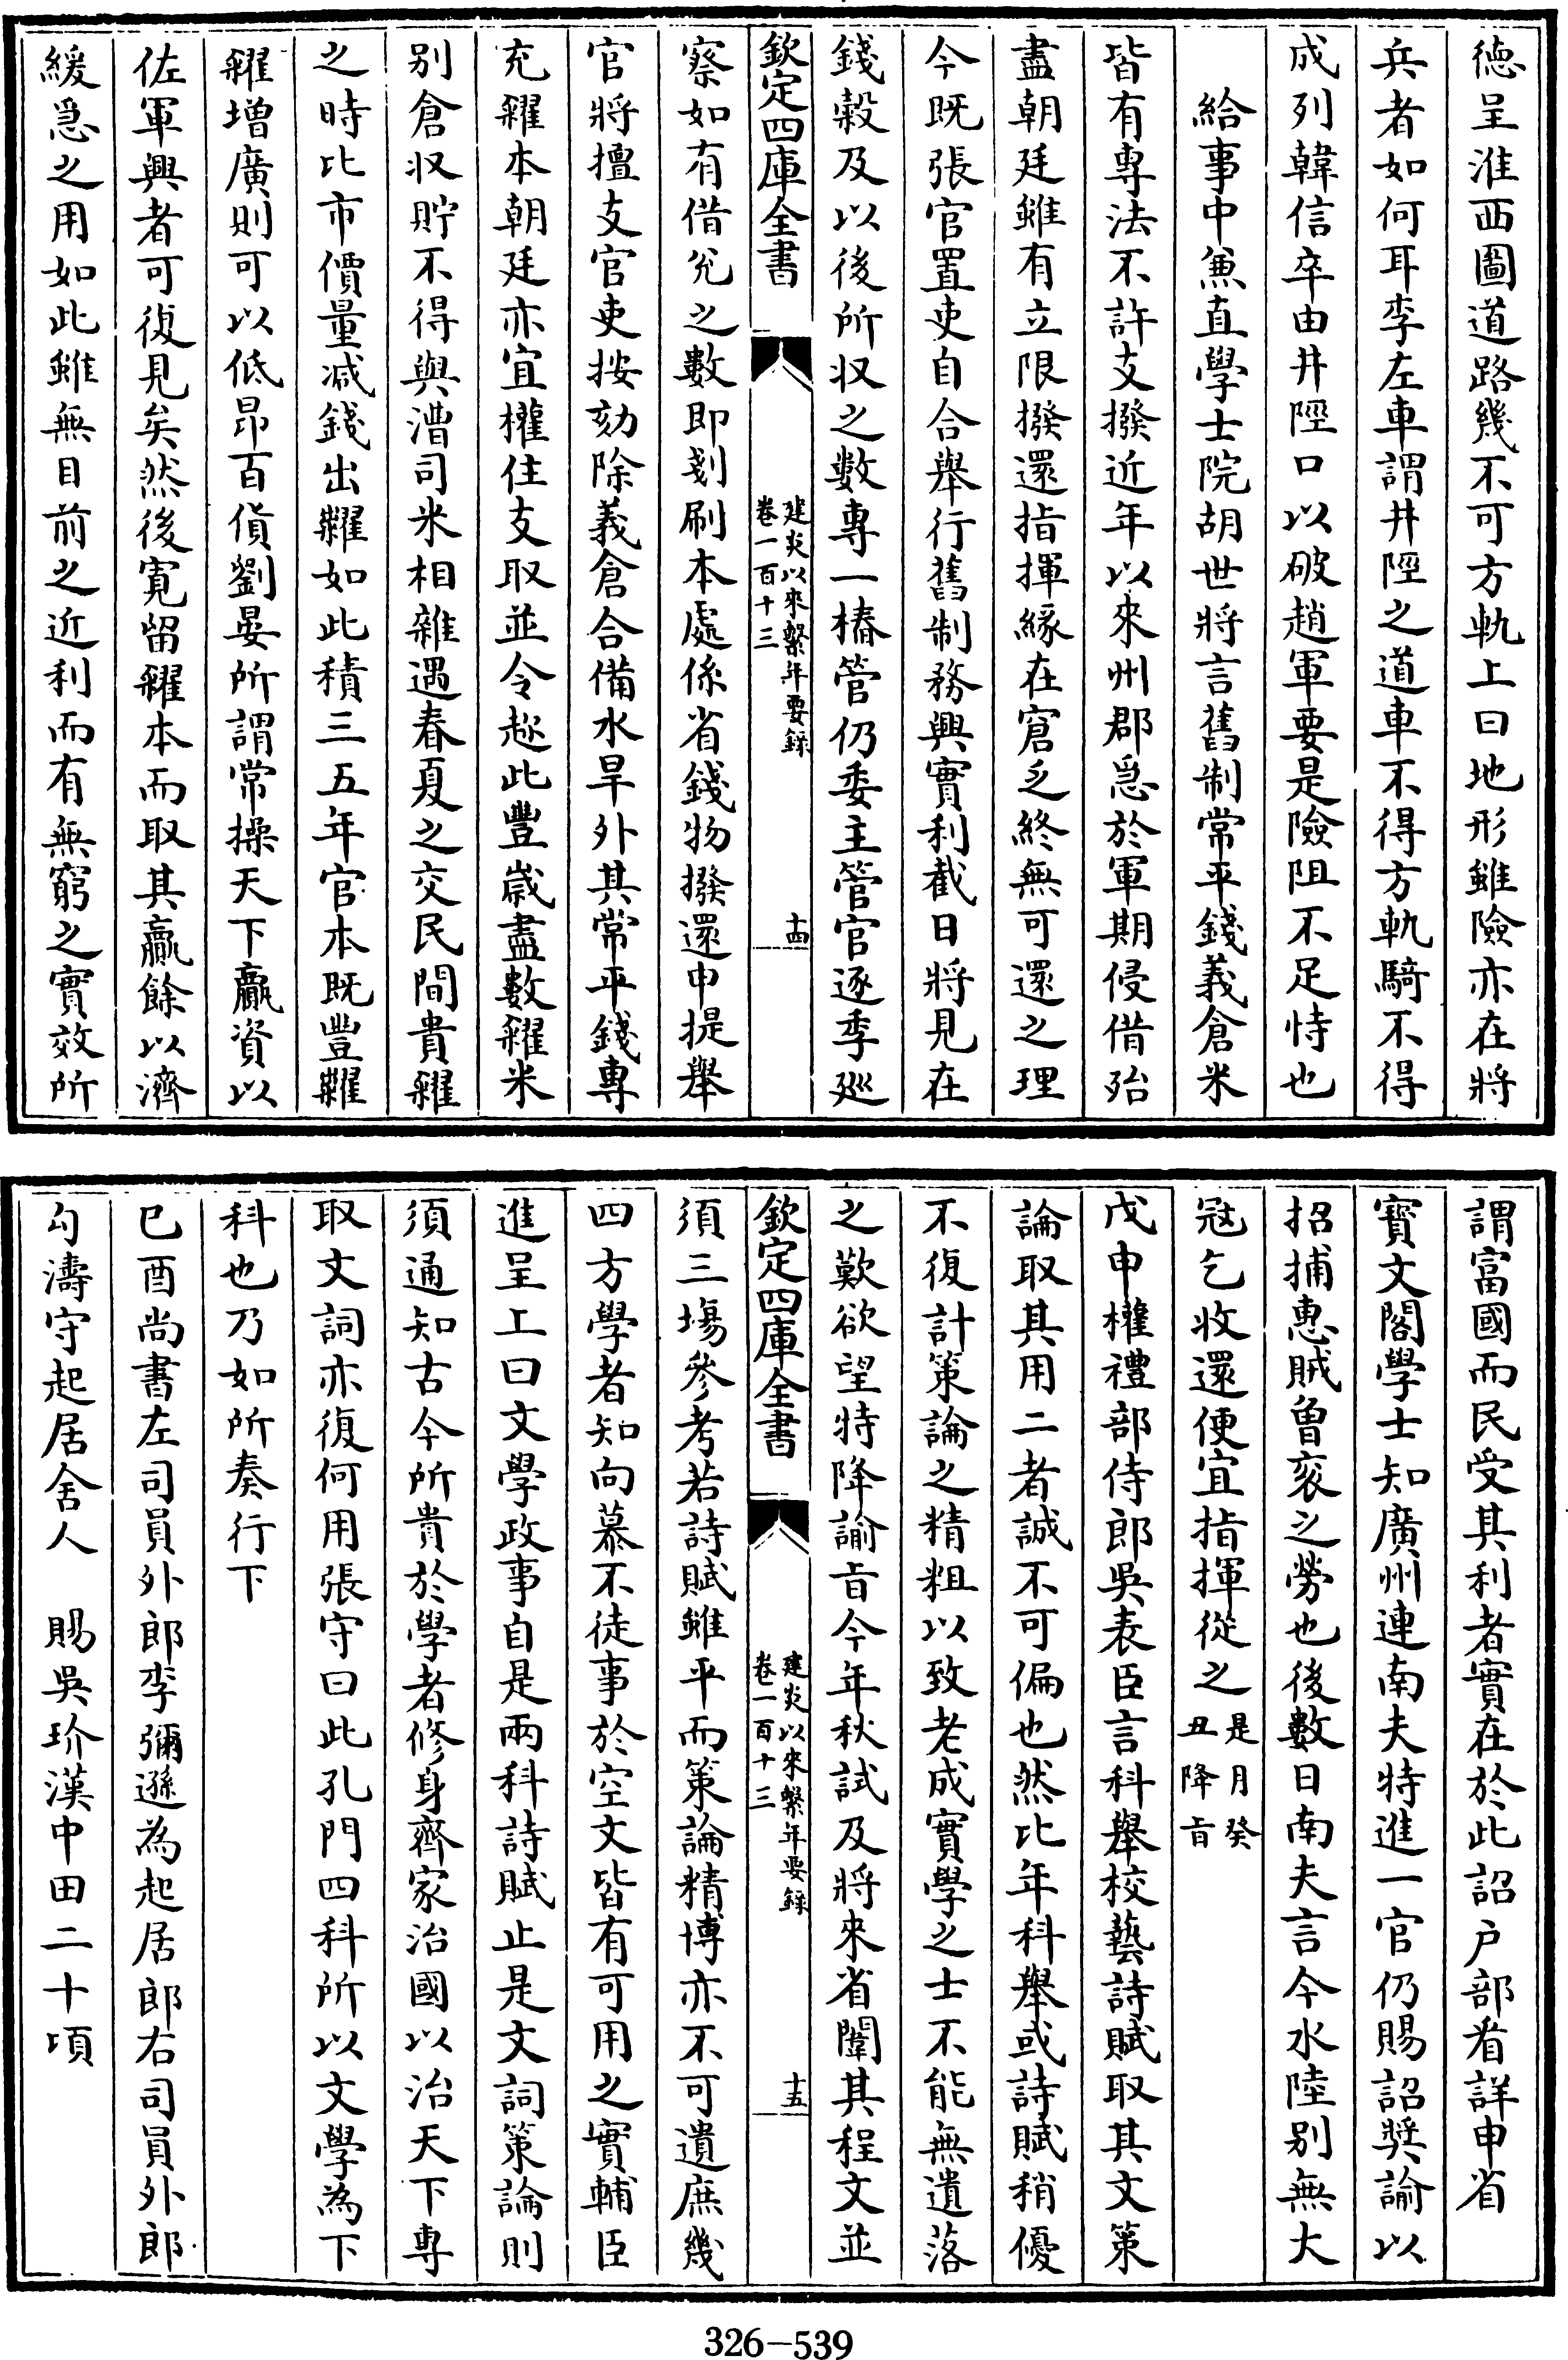 德呈淮西圖道路幾不可方軌上曰地形雖險亦在將
兵者如何耳李左車謂井陘之道車不得方軌騎不得
成列韓信卒由井陘口以破趙軍要是險阻不足恃也
給事中兼直學士院胡世將言舊制常平錢義倉米
皆有專法不許支撥近年以來州郡急於軍期侵借殆
盡朝廷雖有立限撥還指揮緣在窘乏終無可還之理
今既張官置吏自合舉行舊制務興實利截日將見在
錢糓及以後所収之數專一樁管仍委主管官逐季廵
欽定四庫全書
建炎以來繫年要録
卷一百十三
十四
察如有借兊之數即剗刷本處係省錢物撥還申提舉
官將擅支官吏按劾除義倉合備水旱外其常平錢專
充糴本朝廷亦宜權住支取並令趂此豐歲盡數糴米
别倉収貯不得與漕司米相雜遇春夏之交民間貴糴
之時比市價量减錢出糶如此積三五年官本既豐糶
糴增廣則可以低昂百貨劉晏所謂常操天下贏資以
佐軍興者可復見矣然後寛留糴本而取其贏餘以濟
緩急之用如此雖無目前之近利而有無窮之實效所
謂富國而民受其利者實在於此詔户部看詳申省
寳文閣學士知廣州連南夫特進一官仍賜詔奨諭以
招捕惠賊曾衮之勞也後數日南夫言今水陸别無大
冦乞收還便宜指揮從之是月癸
丑降旨
戊申權禮部侍郎吳表臣言科舉校藝詩賦取其文策
論取其用二者誠不可偏也然比年科舉或詩賦稍優
不復計策論之精粗以致老成實學之士不能無遺落
之歎欲望特降諭旨今年秋試及將來省闈其程文並
欽定四庫全書
建炎以來繫年要録
卷一百十三
十五
須三塲參考若詩賦雖平而策論精博亦不可遺庶幾
四方學者知向慕不徒事於空文皆有可用之實輔臣
進呈上曰文學政事自是兩科詩賦止是文詞策論則
須通知古今所貴於學者修身齊家治國以治天下專
取文詞亦復何用張守曰此孔門四科所以文學為下
科也乃如所奏行下
己酉尚書左司員外郎李彌遜為起居郎右司員外郎
勾濤守起居舍人　賜吳玠漢中田二十頃
326-539